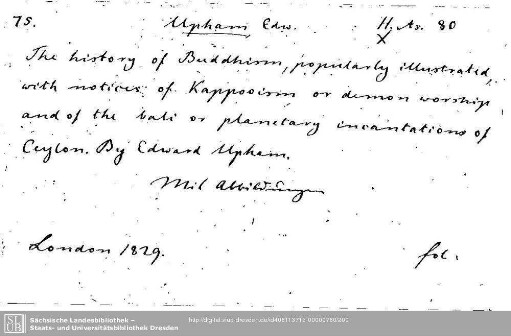 75. Upham, Edw. H. As. 80
X
The history of Buddhism, popularly illustrated,
with notices of Kappooism or demon worship
and of the bali or planetary incantations of
Ceylon. By Edward Upham.
Mit Abbildungen
London 1829. fol.
Sächsische Landesbibliothek –
Staats- und Universitätsbibliothek Dresden